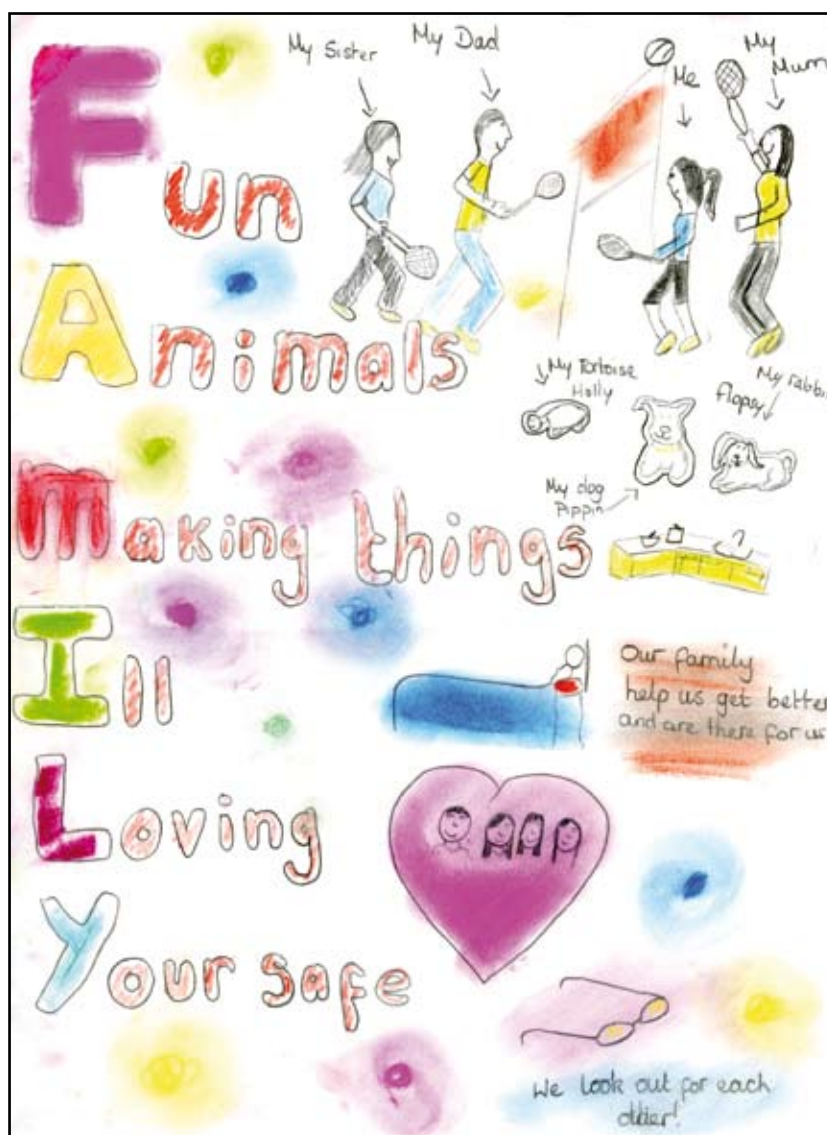 My Sister
My Dad
Me
My
Mum
Fun
Animals
My Tortoise
Holly
Flopsy
My rabbit
My dog
Pippin
Making things
Ill
Our family
help us get better
and are there for us
Loving
Your safe
We look out for each
other!